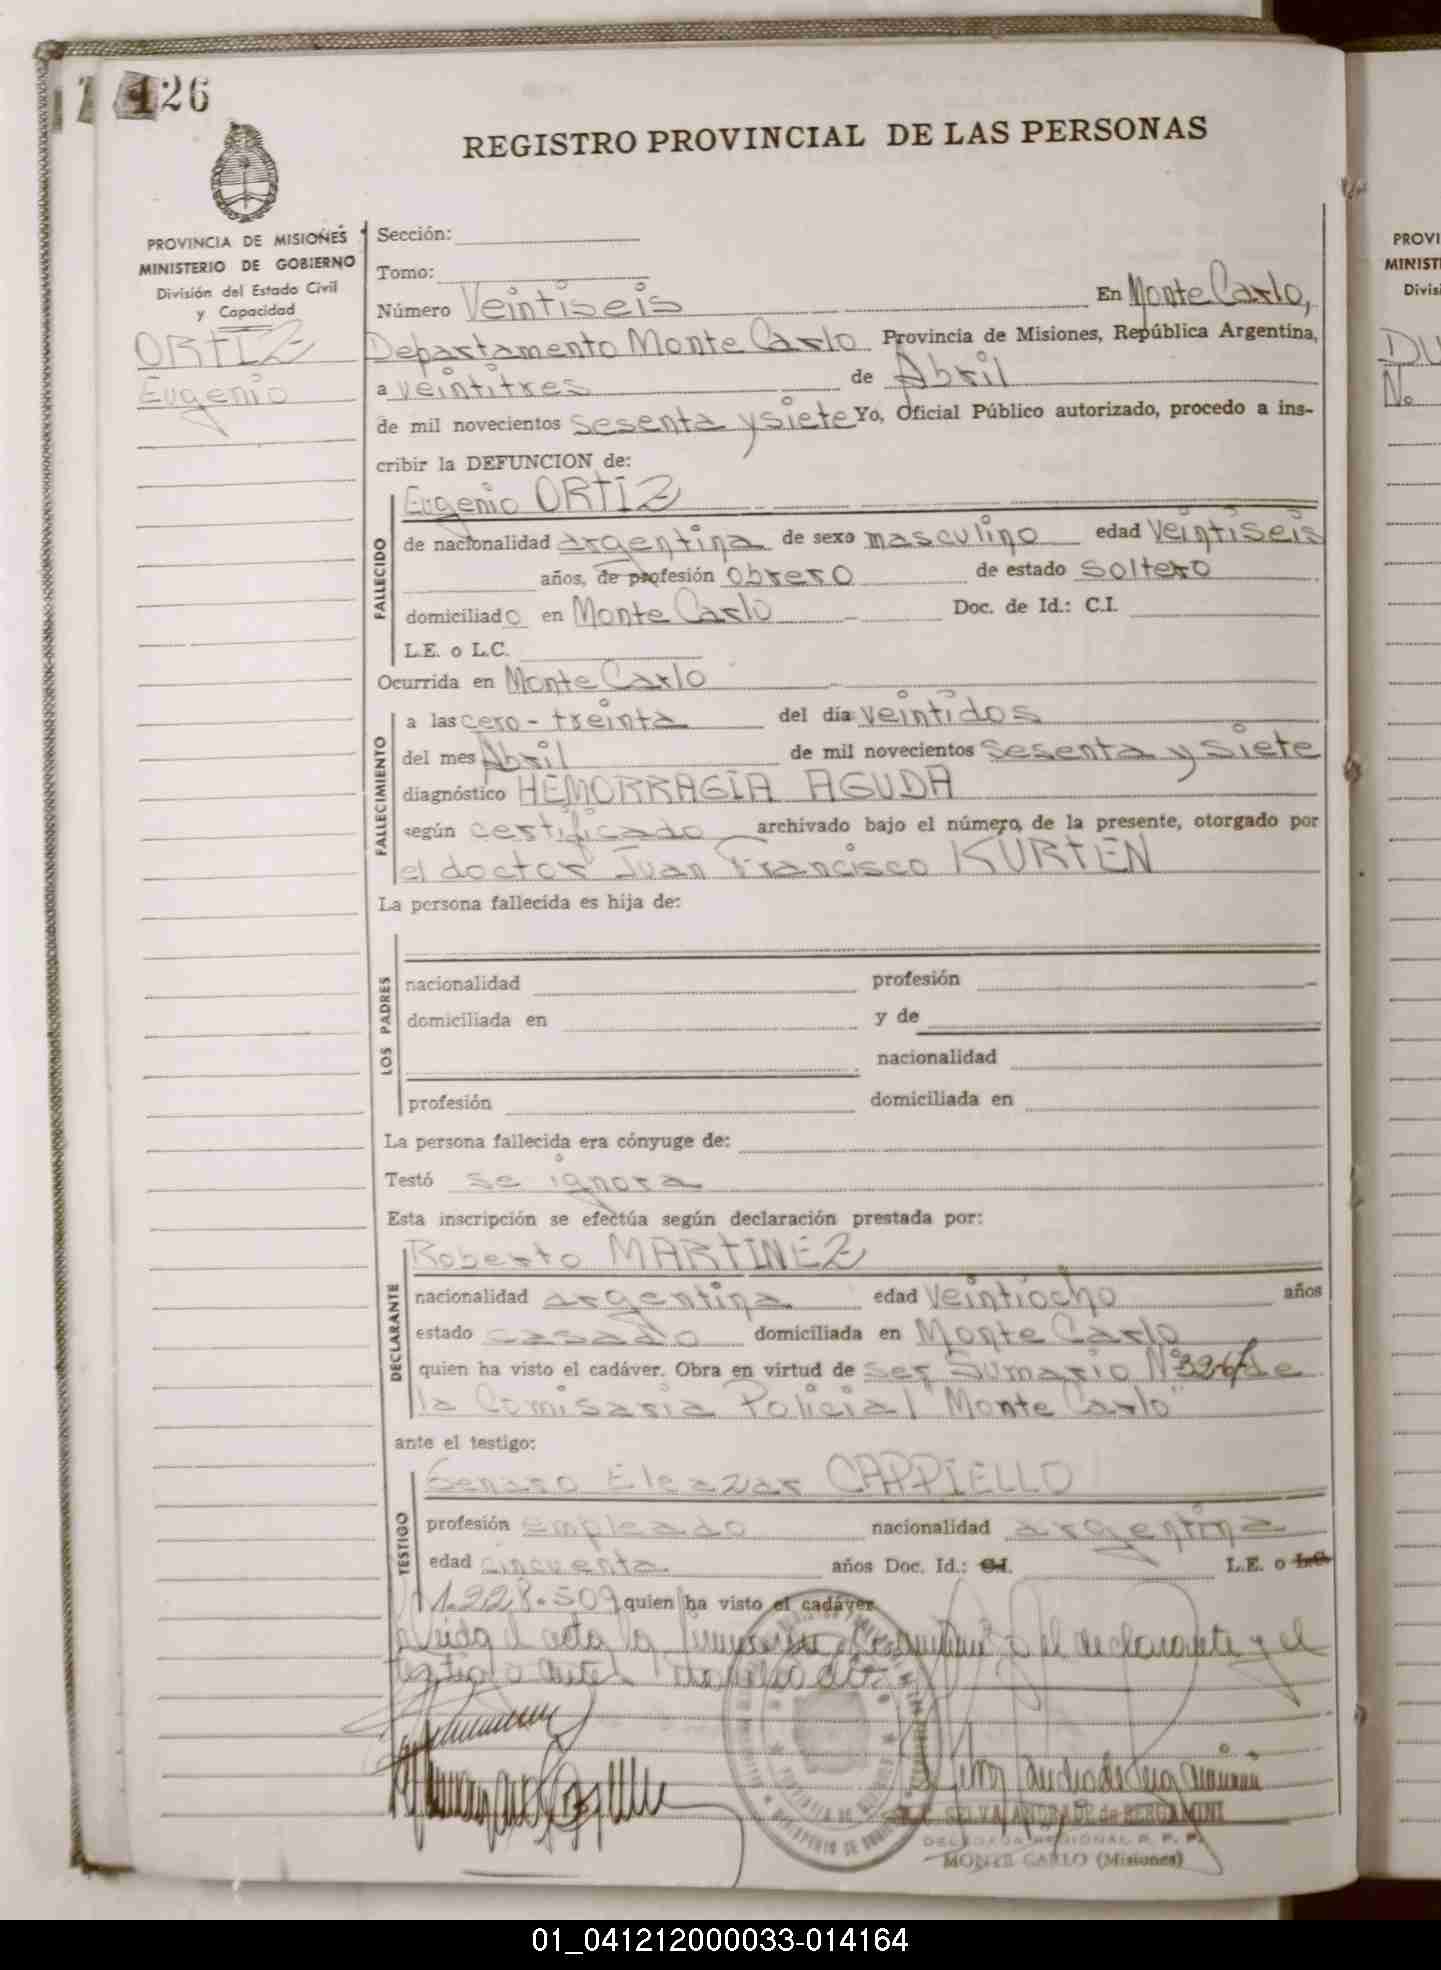 126
REGISTRO PROVINCIAL DE LAS PERSONAS
PROVINCIA DE MISIONES
MINISTERIO DE GOBIERNO
División del Estado Civil
y Capacidad
ORTIZ
Eugenio
Sección:
Tomo:
Número Veintiseis En Monte Carlo,
Departamento Monte Carlo Provincia de Misiones, República Argentina,
a veintitres de Abril
de mil novecientos sesenta y siete Yo, Oficial Público autorizado, procedo a ins-
cribir la DEFUNCION de:
FALLECIDO
Eugenio ORTIZ
de nacionalidad argentina de sexo masculino edad veintiseis
años, de profesión obrero de estado soltero
domiciliado en Monte Carlo Doc. de Id.: C.I.
L.E. o L.C.
Ocurrida en Monte Carlo
FALLECIMIENTO
a las cero - treinta del día veintidos
del mes Abril de mil novecientos sesenta y siete
diagnóstico HEMORRAGIA AGUDA
según certificado archivado bajo el número de la presente, otorgado por
el doctor Juan Francisco KURTEN
La persona fallecida es hija de:
LOS PADRES
nacionalidad profesión
domiciliada en y de
nacionalidad
profesión domiciliada en
La persona fallecida era cónyuge de:
Testó se ignora
Esta inscripción se efectúa según declaración prestada por:
DECLARANTE
Roberto MARTINEZ
nacionalidad argentina edad veintiocho años
estado casado domiciliada en Monte Carlo
quien ha visto el cadáver. Obra en virtud de ser Sumario Nº de
la Comisaria Policial "Monte Carlo"
ante el testigo:
TESTIGO
Genaro Eleazar CAPPIELLO
profesión empleado nacionalidad argentina
edad cincuenta años Doc. Id.: C.I. L.E. o L.C.
1.228.509 quien ha visto el cadáver
el acta la el declarante y el
testigo ante
SELVA ANDRADE de BERGAMINI
DELEGADA REGIONAL R. P. P.
MONTE CARLO (Misiones)
PROVI
MINIST
Divisi
DU
No
01_041212000033-014164